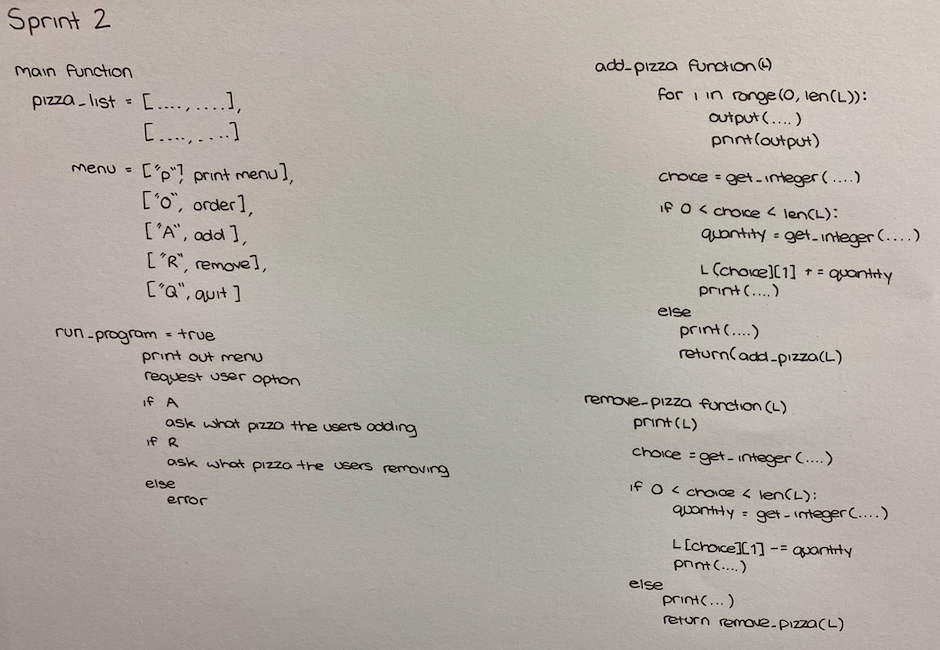 Sprint 2
main function
pizza_list = [...., ....],
[...., ....]
menu = ["p"], print menu],
["O", order],
["A", add],
["R", remove],
["Q", quit]
run_program = true
print out menu
request user option
if A
ask what pizza the users adding
if R
ask what pizza the users removing
else
error
add_pizza function(L)
for i in range(0, len(L)):
output(....)
print(output)
choice = get_integer(....)
if 0 < choice < len(L):
quantity = get_integer(....)
L[choice][1] += quantity
print(....)
else
print(....)
return(add_pizza(L)
remove_pizza function(L)
print(L)
choice = get_integer(....)
if 0 < choice < len(L):
quantity = get_integer(....)
L[choice][1] -= quantity
print(....)
else
print(...)
return remove_pizza(L)